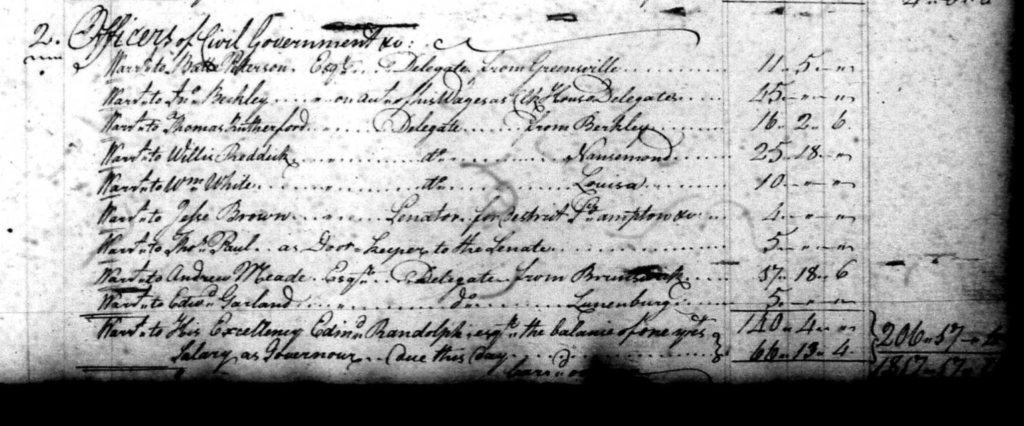 2. Officers of Civil Government &c:
Warrt. to Batte Peterson Esqr. Delegate from Greensville 11.. 5.. "
Warrt. to Jno. Beckley on acct. of his Wages as Clk House Delegates 45.. " .. "
Warrt. to Thomas Rutherford Delegate from Berkley 16.. 2.. 6
Warrt. to Willis Reddick do. Nansemond 25.. 18.. "
Warrt. to Wm. White do. Louisa 10.. " .. "
Warrt. to Jesse Brown Senator for Destrict Sohampton &c 4.. " .. "
Warrt. to Thos. Paul as Door-keeper to the Senate 5.. " .. "
Warrt. to Andrew Meade Esqr. Delegate from Brunswick 17.. 18.. 6
Warrt. to Edwd. Garland do. Lunenburg 5.. " .. "
140.. 4.. "
Warrt. to His Excellency Edmd. Randolph esqr. the balance of one yrs.
Salary as Governour due this day 66.. 13.. 4 206.. 17..
1817.. 17..